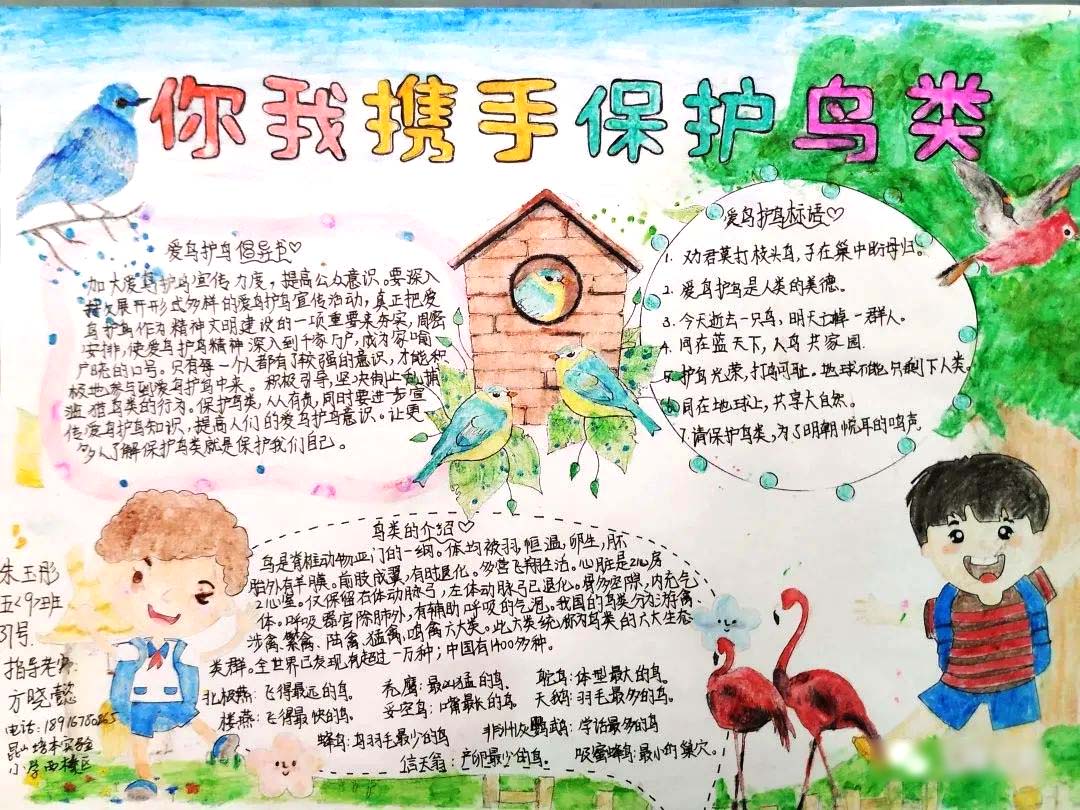 你我携手保护鸟类
爱鸟护鸟倡导书♡
加大爱鸟护鸟宣传力度，提高公众意识。要深入
持久展开形式多样的爱鸟护鸟宣传活动，真正把爱
鸟护鸟作为精神文明建设的一项重要来务实，周密
安排，使爱鸟护鸟精神深入到千家万户，成为家喻
户晓的口号。只有每一个人都有了较强的意识，才能积
极地参与到爱鸟护鸟中来。积极引导，坚决制止乱捕
滥猎鸟类的行为。保护鸟类，人人有责，同时要进步宣
传爱鸟护鸟知识，提高人们的爱鸟护鸟意识。让更
多人了解保护鸟类就是保护我们自己。
爱鸟护鸟标语♡
1. 劝君莫打枝头鸟，子在巢中盼母归。
2. 爱鸟护鸟是人类的美德。
3. 今天逝去一只鸟，明天士掉一群人。
4. 同在蓝天下，人鸟共家园.
5. 护鸟光荣，打鸟可耻。地球不能只剩下人类。
6. 同在地球上，共享大自然。
7. 请保护鸟类，为了明朝悦耳的鸣声.
鸟类的介绍♡
鸟是脊椎动物亚门的一纲。体均被羽，恒温，卵生，胚
胎外有羊膜。前肢成翼，有时退化。多营飞翔生活。心脏是2心房
2心室。仅保留右体动脉弓，左体动脉弓已退化。骨多空隙，内充气
体。呼吸器官除肺外，有辅助呼吸的气泡。我国的鸟类分为游禽、
涉禽、攀禽、陆禽、猛禽、鸣禽六大类。此大类统称为鸟类的六大生态
类群。全世界已发现有超过一万种；中国有1400多种。
北极燕：飞得最远的鸟。 秃鹰：最凶猛的鸟。 鸵鸟：体型最大的鸟。
楼燕：飞得最快的鸟。 妥空鸟：嘴最长的鸟。 天鹅：羽毛最多的鸟。
蜂鸟：鸟羽毛最少的鸟 非州灰鹦鹉：学话最多的鸟
信天翁：产卵最少的鸟。 吸蜜蜂鸟：最小的巢穴。
朱玉彤
五<9>班
31号
指导老师：
方晓懿
昆山培本实验
小学西校区